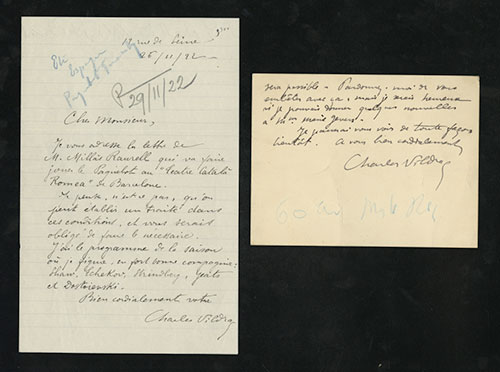 12 rue de Seine
25/11/22
R 29/11/22
Cher Monsieur,
Je vous adresse la lettre de
M. Millàs Raurell qui va faire
jouer le Paquebot au "Teatre Català
Romea" de Barcelone.
Je pense, n'est-ce pas, qu'on
peut établir un traité dans
ces conditions, et vous serais
obligé de faire le nécessaire.
J'ai le programme de la saison
où je figure en fort bonne compagnie:
Shaw, Tchekov, Strindberg, Yeats
et Dostoievski.
Bien cordialement votre
Charles Vildrac
sera possible - Pardonnez-moi de vous
embêter avec ça, mais je serais heureux
si je pouvais donner quelques nouvelles
à
Je passerai vous voir de toute façon
bientôt. À vous bien cordialement
Charles Vildrac